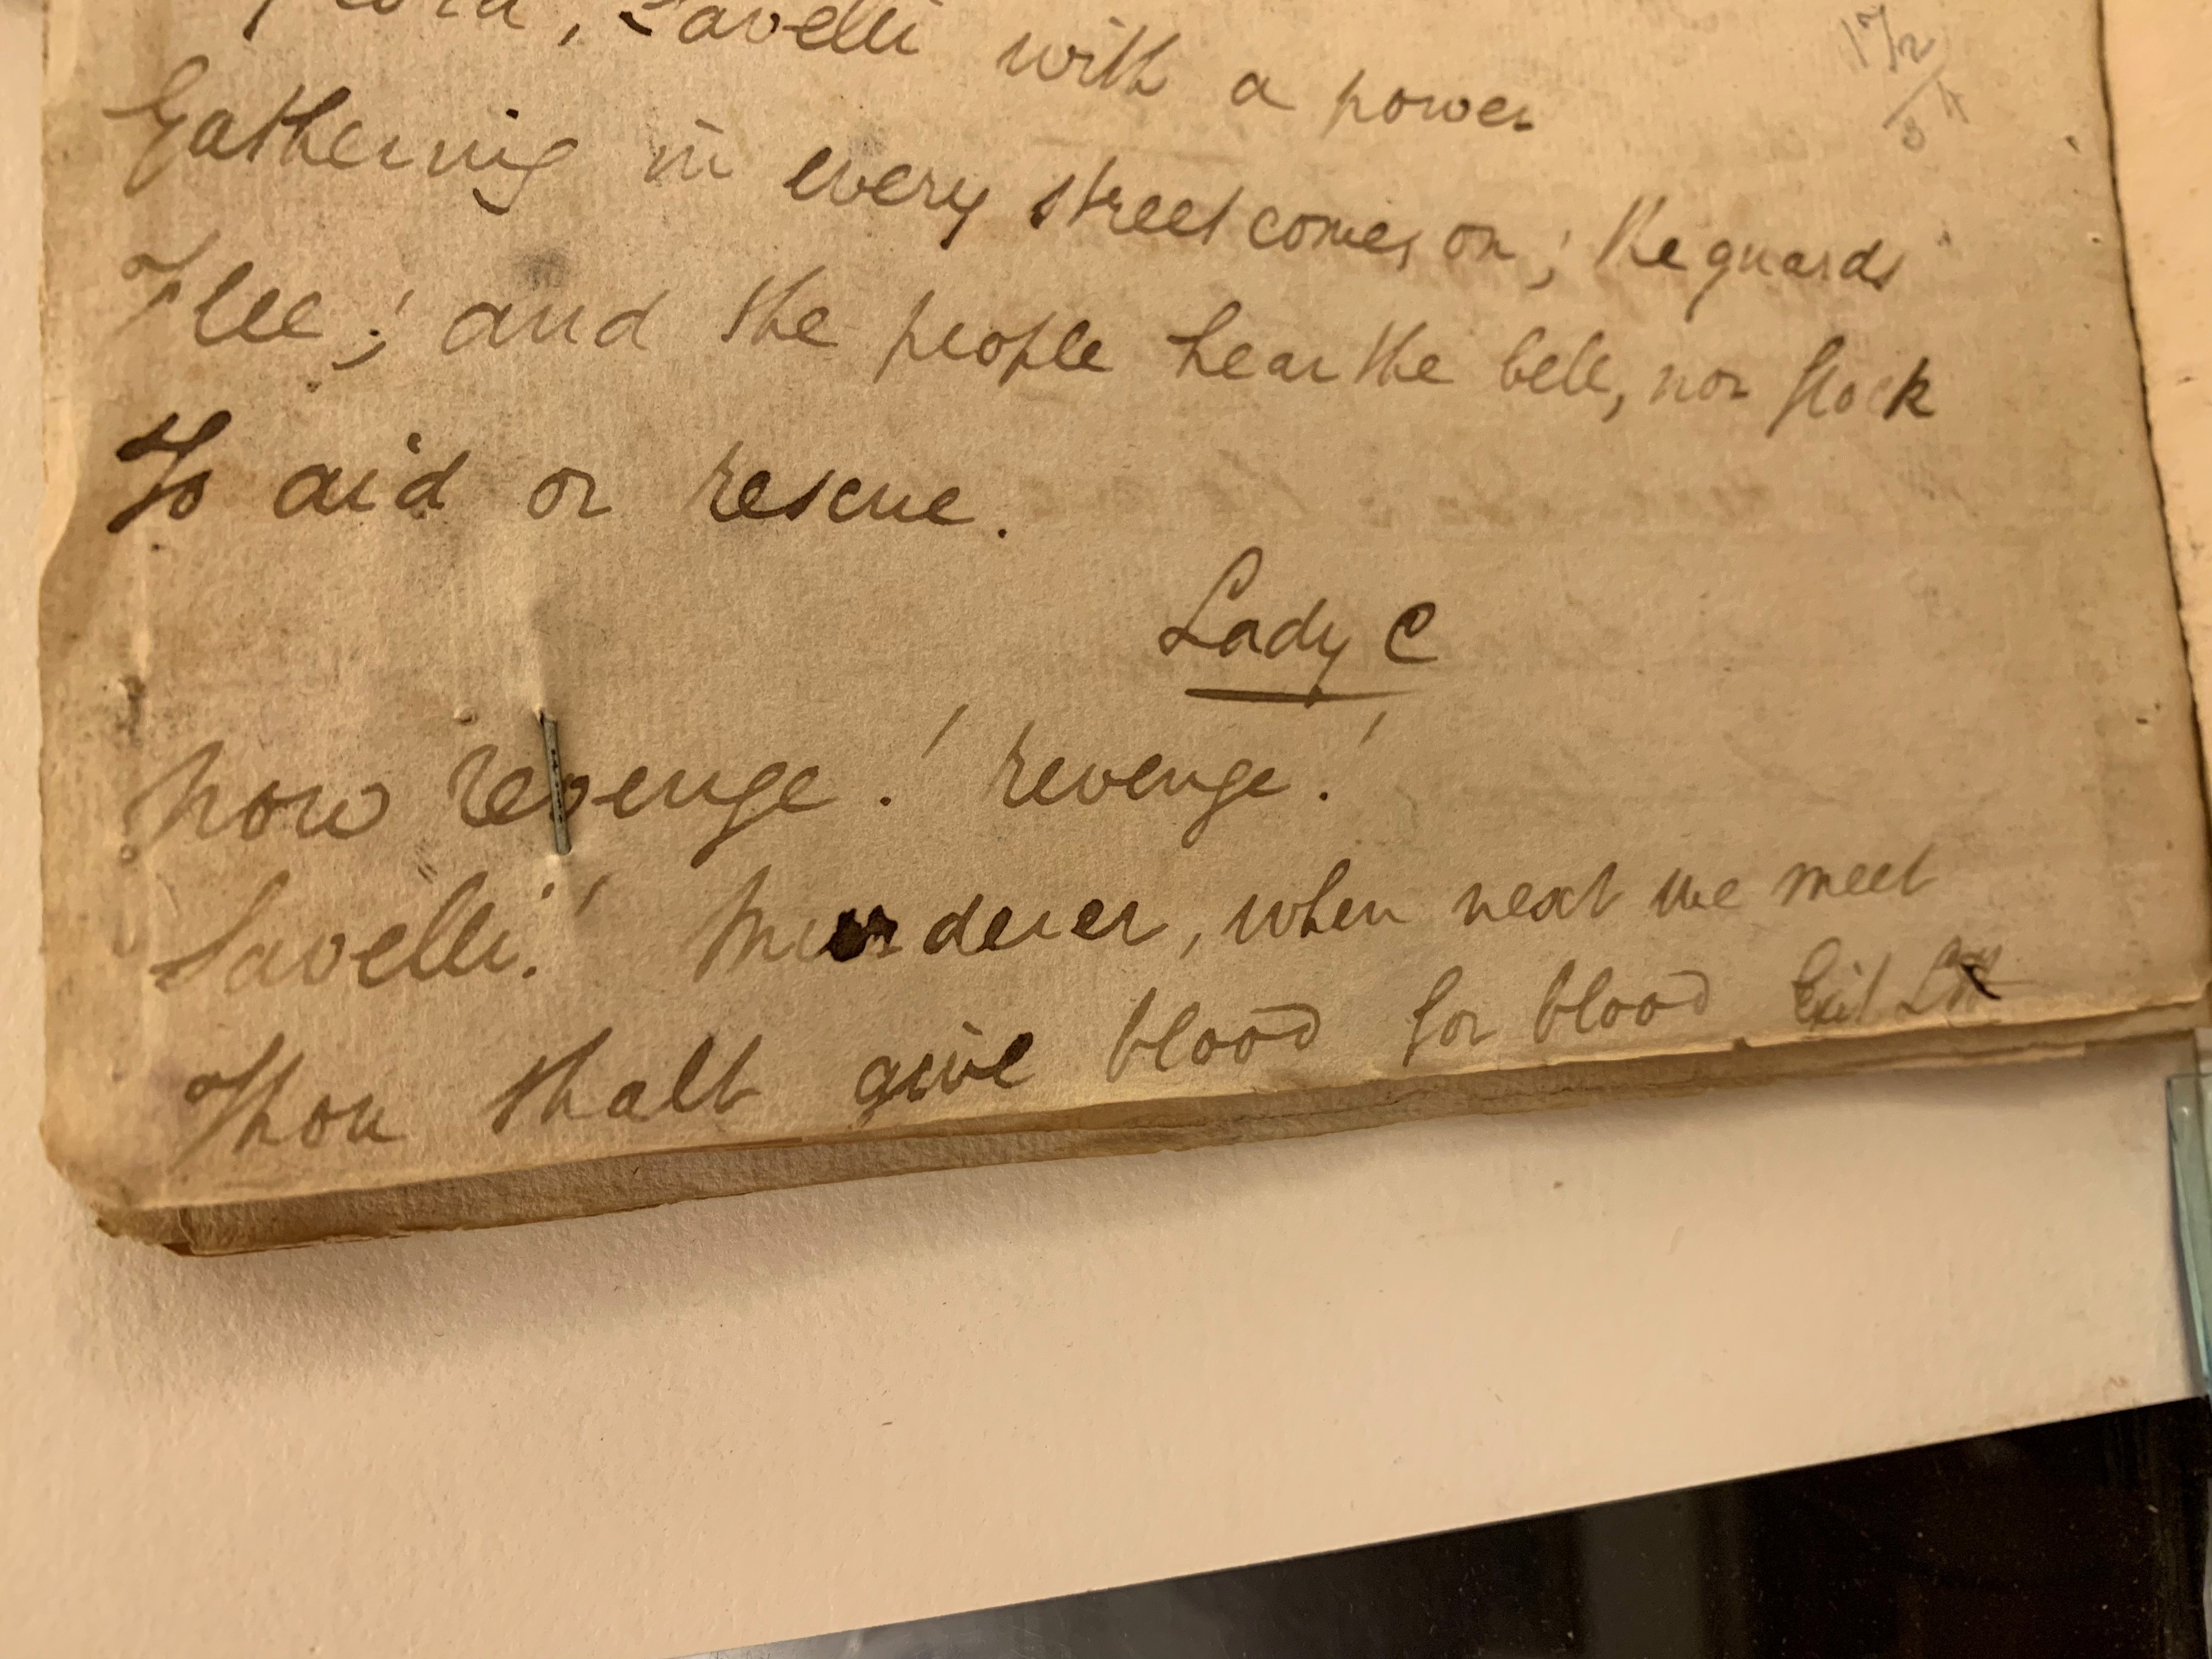 Savelli with a power
172
34
Gathering in every street comes on; the guards
Flee; and the people hear the bell, nor flock
To aid or rescue.
Lady C
now revenge! revenge!
Savelli! Murderer, when next we meet
Thou shalt give blood for blood Exit